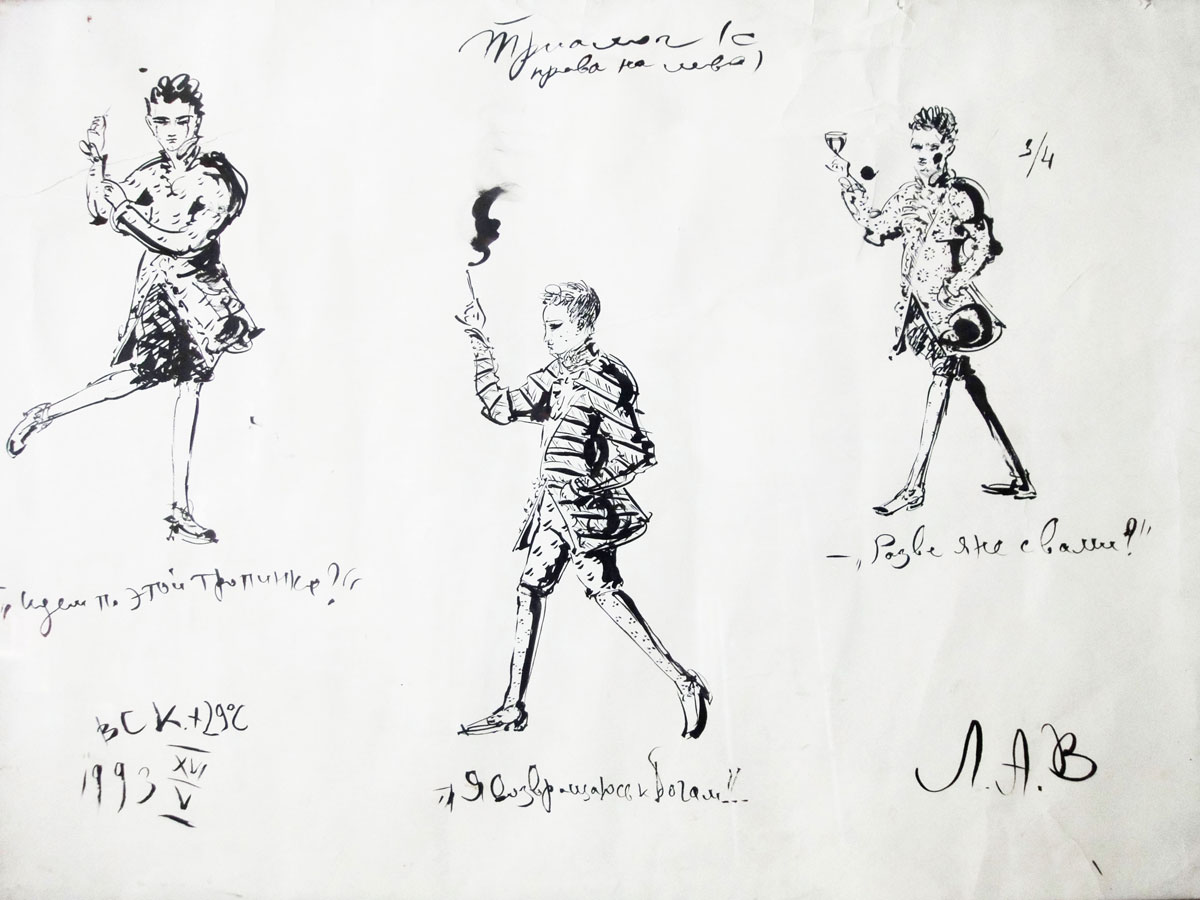 Триалог (с
права на лево)
3/4
– „Разве я не с вами?"
„Идем по этой тропинке?"
„Я возвращаюсь к Богам"...
ВСК. +29°C
1993 XVI
V
Л.А.В